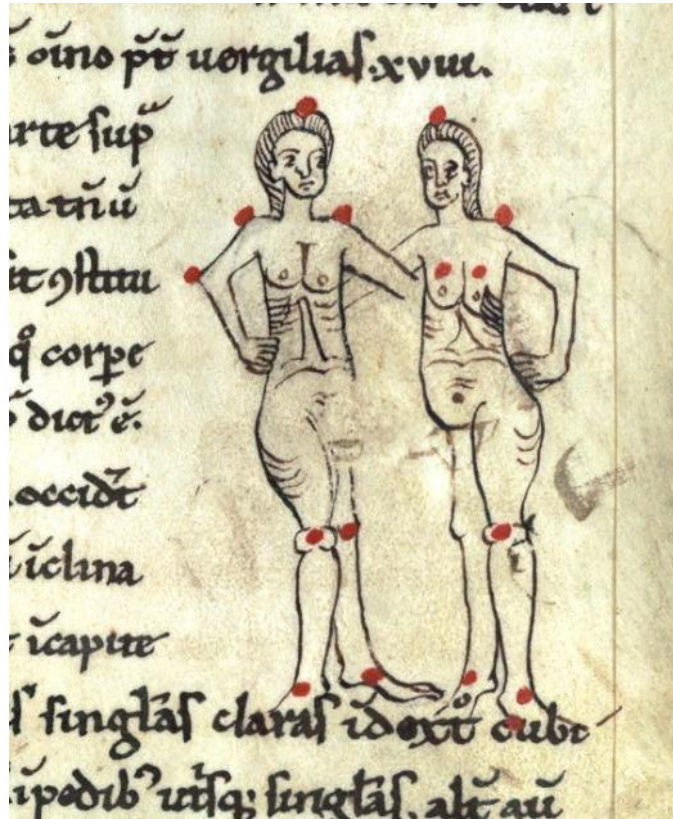 oīno p̄t uergilias.xviii.
arte sup̄
ta tn̄ ū
ꝯstitu
corpe
dict' ē.
occidt̄
īclina
īcapite
singlas claras id exť cubt
īpedib' utisq; singlas, alť aū